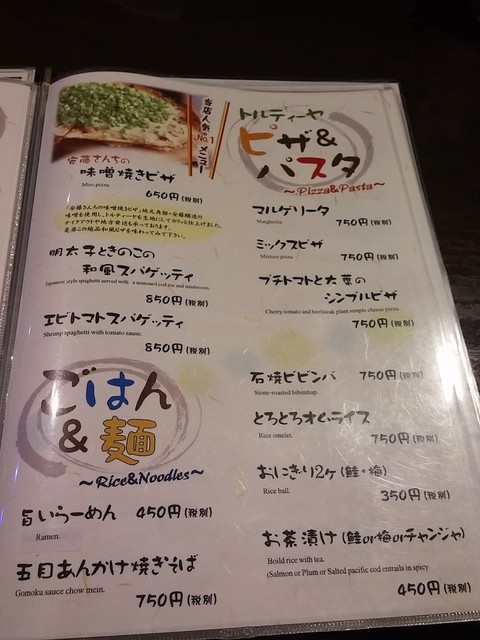 当店人気No.1メニュー
安藤さんちの
味噌焼きピザ
Miso pizza.
650円(税別)
「安藤さんちの味噌焼きピザ」地元角館・安藤醸造の
味噌を使用し、トルティーヤを生地にしてカリッと仕上げました。
テイクアウトや地方発送も承っております。
是非この絶品和風ピザを味わってみて下さい。
明太子ときのこの
和風スパゲッティ
Japanese style spaghetti served with a seasoned cod roe and mushroom.
850円(税別)
エビトマトスパゲッティ
Shrimp spaghetti with tomato sause.
850円(税別)
トルティーヤ
ピザ&
パスタ
~Pizza&Pasta~
マルゲリータ
Margherita.
750円(税別)
ミックスピザ
Mixture pizza.
750円(税別)
プチトマトと大葉の
シンプルピザ
Cherry tomato and beefsteak plant simple cheese pizza.
750円(税別)
ごはん
&麺
~Rice&Noodles~
旨いらーめん 450円(税別)
Ramen.
五目あんかけ焼きそば
Gomoku sauce chow mein.
750円(税別)
石焼ビビンバ 750円(税別)
Stone-roasted bibimbap.
とろとろオムライス
Rice omelet.
750円(税別)
おにぎり2ヶ(鮭・梅)
Rice ball.
350円(税別)
お茶漬け(鮭or梅orチャンジャ)
Boild rice with tea.
(Salmon or Plum or Salted pacific cod entrails in spicy
450円(税別)